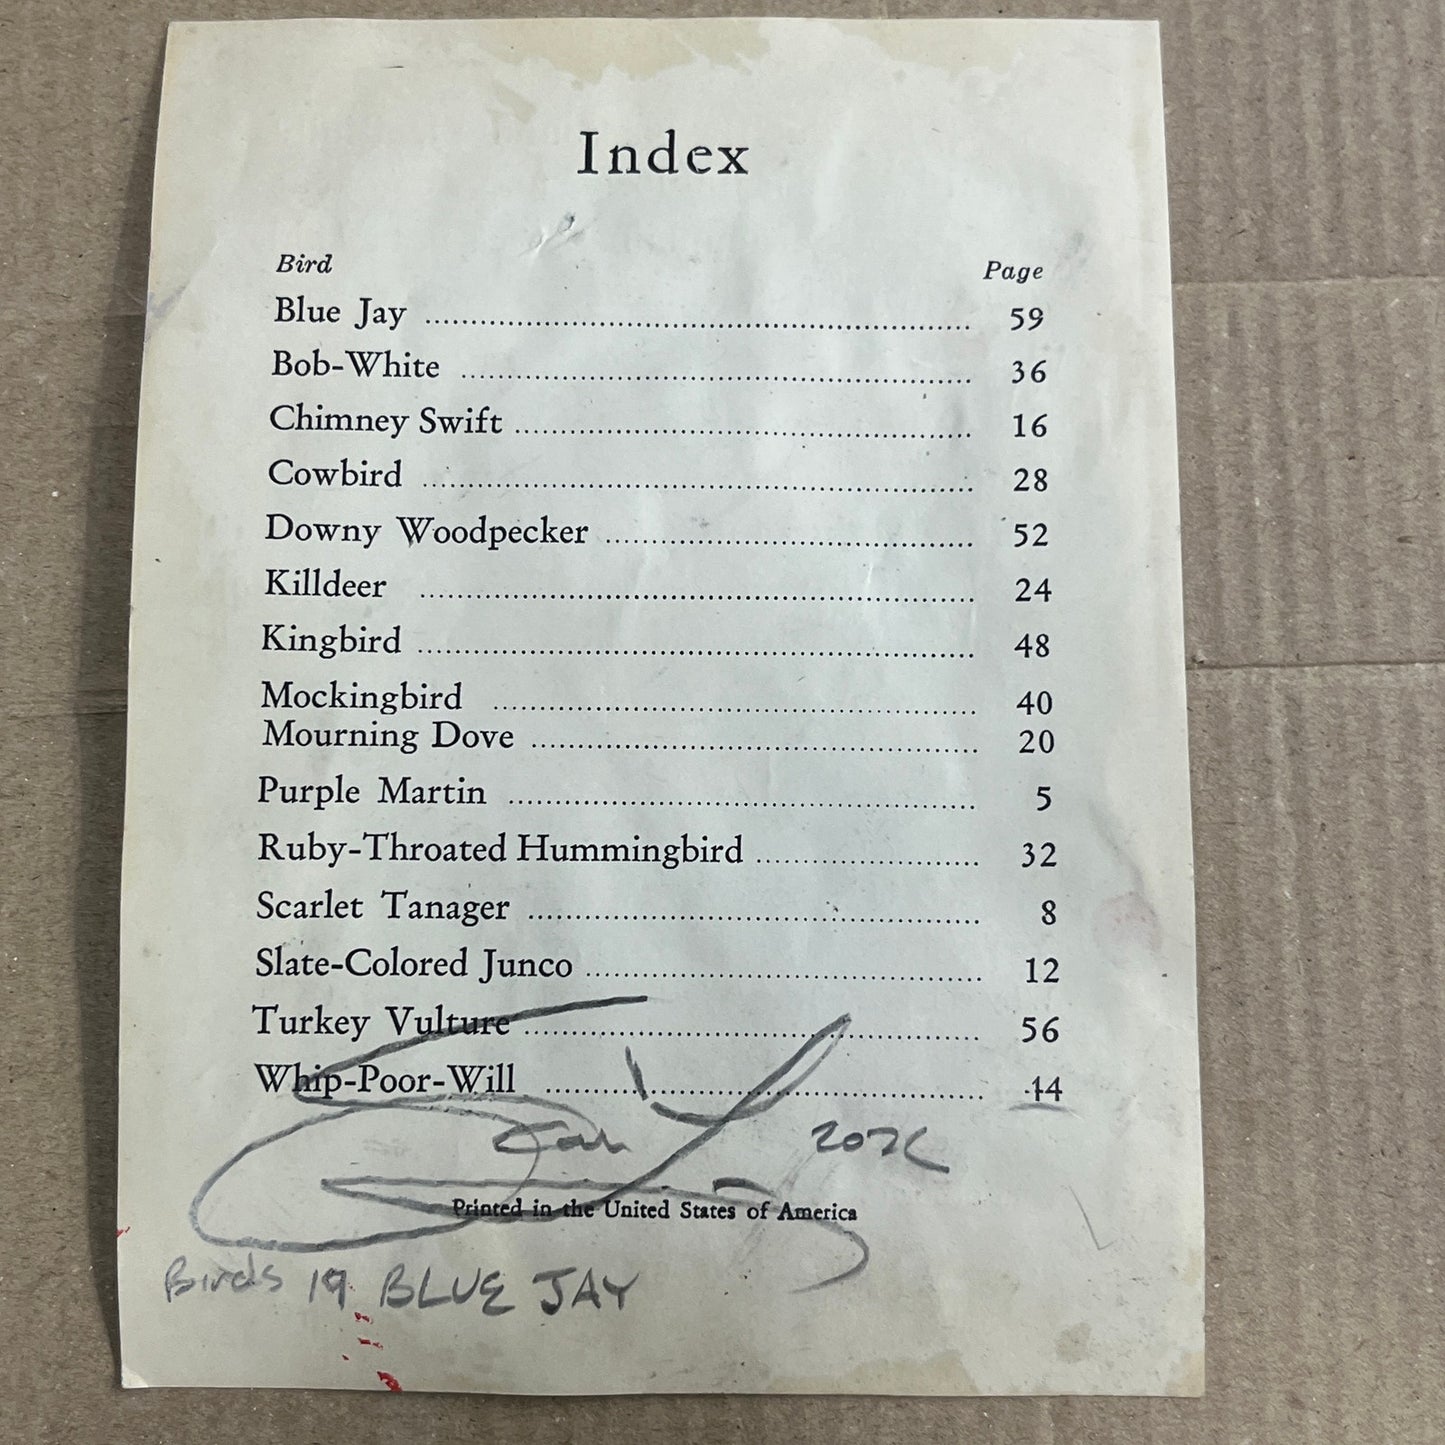 Index
Bird Page
Blue Jay ........................................................... 59
Bob-White ....................................................... 36
Chimney Swift ................................................. 16
Cowbird ........................................................... 28
Downy Woodpecker ....................................... 52
Killdeer ........................................................... 24
Kingbird ........................................................... 48
Mockingbird .................................................... 40
Mourning Dove ............................................... 20
Purple Martin .................................................. 5
Ruby-Throated Hummingbird ........................ 32
Scarlet Tanager ................................................ 8
Slate-Colored Junco ......................................... 12
Turkey Vulture ................................................ 56
Whip-Poor-Will ............................................... 44
Printed in the United States of America
Birds 19 BLUE JAY